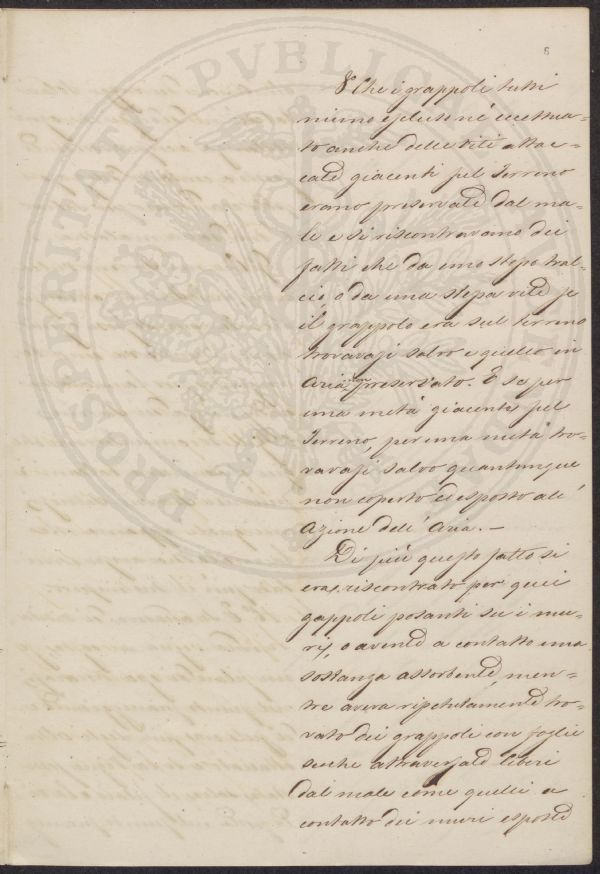 6
8° Che i grappoli tutti
niuno escluso nè eccettua=
to anche delle Viti attac=
cate giacenti sul Terreno
erano preservate dal ma=
le e si riscontravano dei
fatti che da uno stesso tral=
cio, o da una stessa vite se
il grappolo era sul terreno
trovavasi salvo e quello in
Aria non preservato. E se per
una metà giacente sul
Terreno, per una metà tro=
vavasi salvo quantunque
non coperto ed esposto all'
Azione dell'Aria. –
Di più questo fatto si
era riscontrato per quei
gappoli posanti su i mu=
ri, o avente a contatto una
sostanza assorbente, men=
tre aveva ripetutamente tro=
vato dei grappoli con foglie
secche attraversate liberi
dal male come quelli a
contatto dei muri esposti
PROSPERITATI PVBLICAE